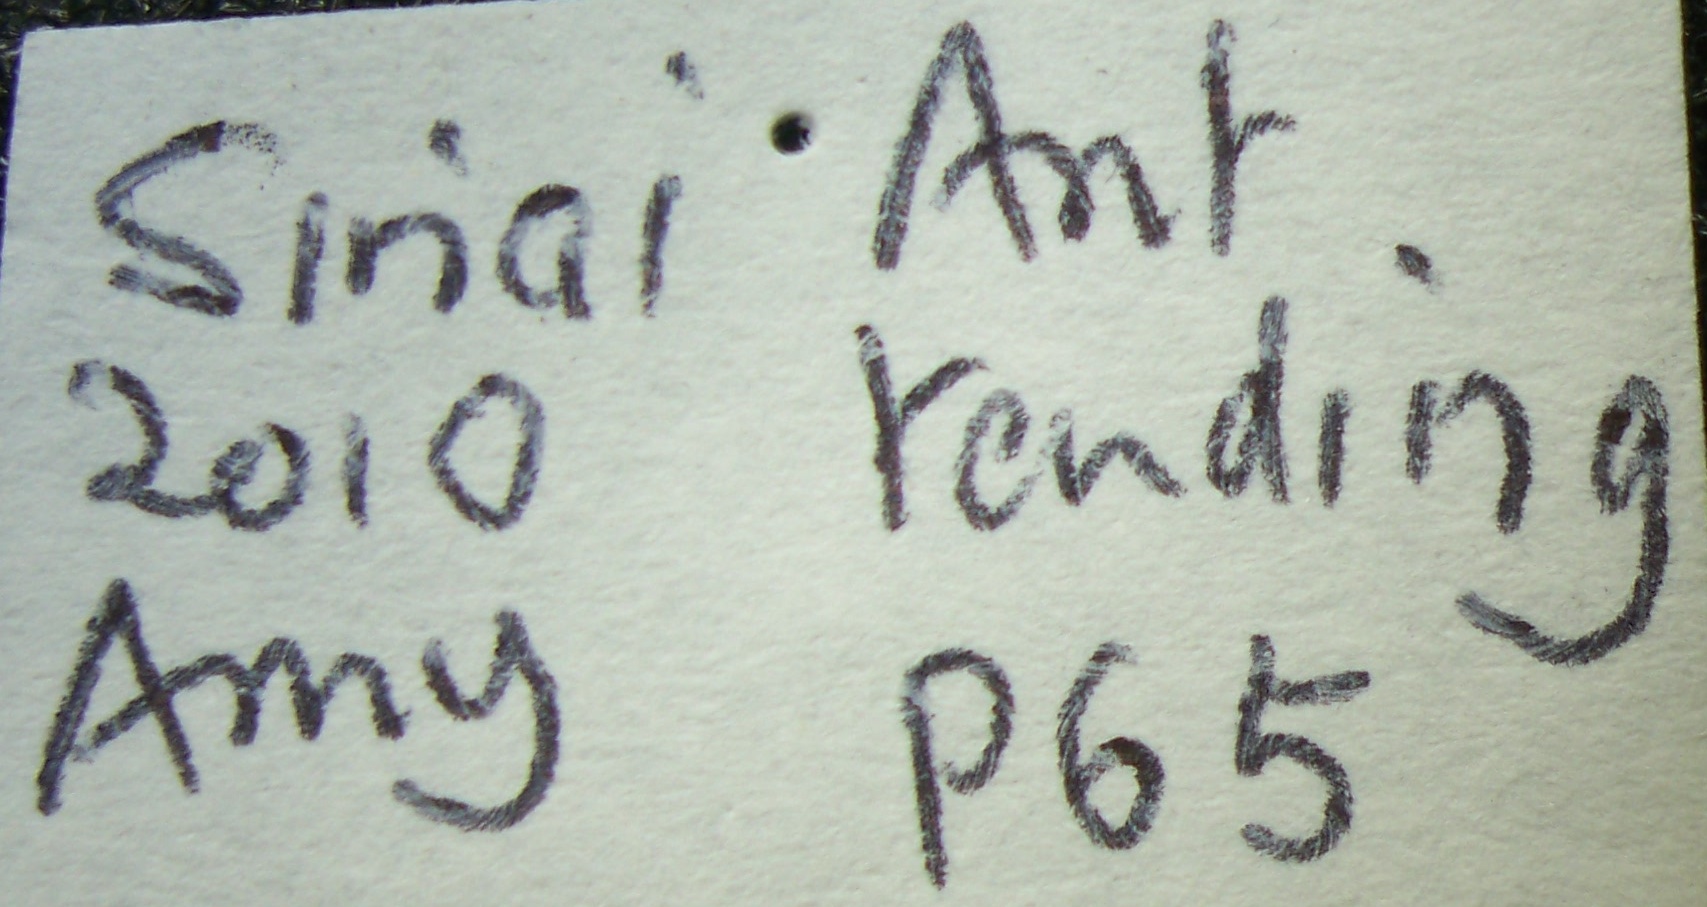 Sinai
2010
Amy
Ant
tending
P65